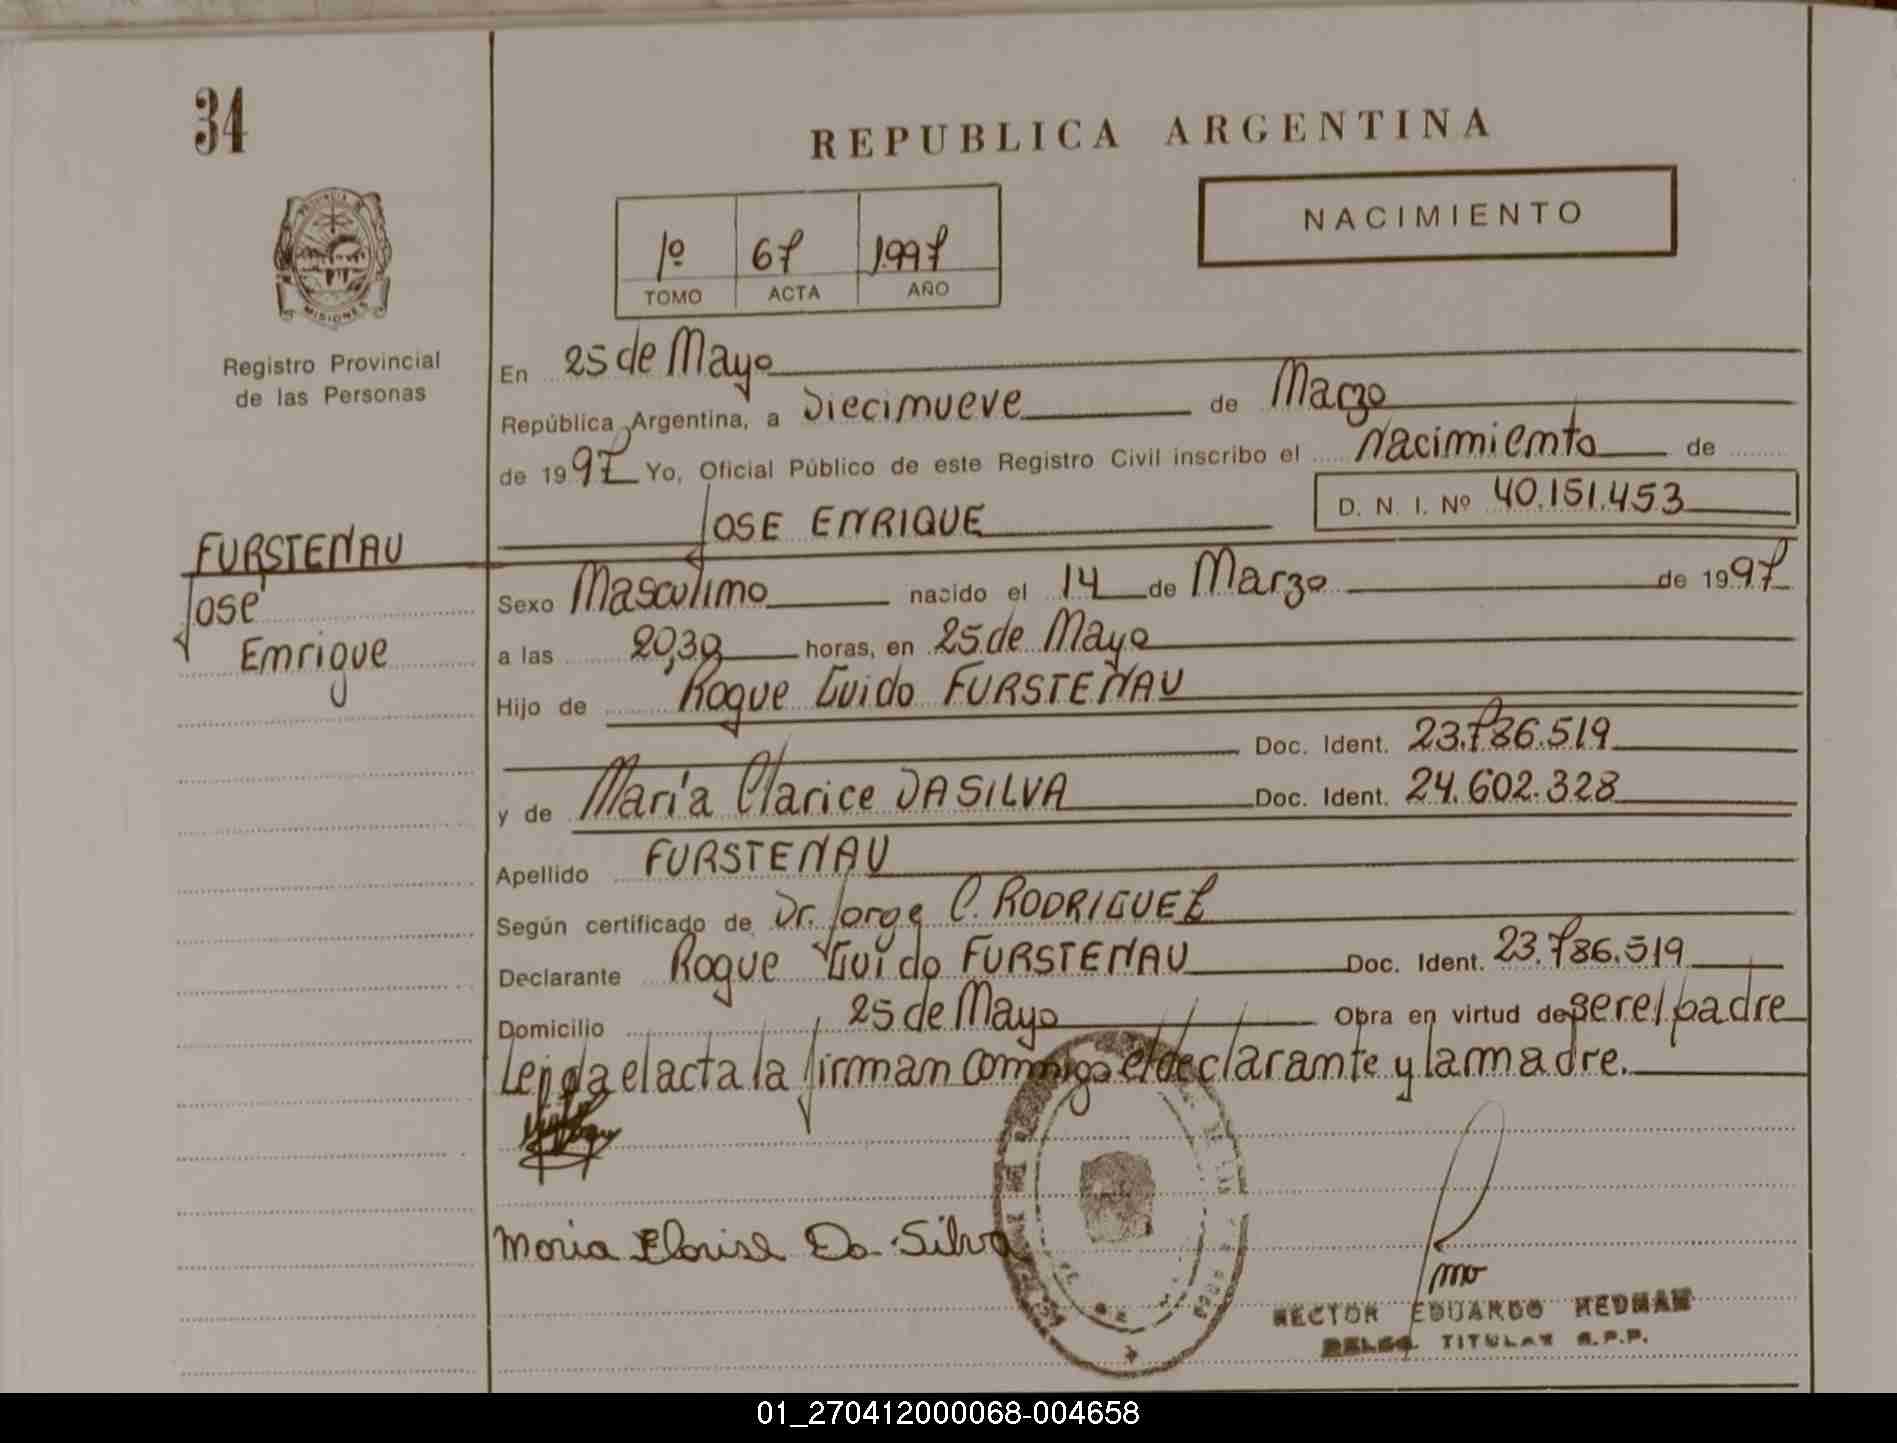 34
REPUBLICA ARGENTINA
NACIMIENTO
1º 67 1997
TOMO ACTA AÑO
MISIONES
Registro Provincial
de las Personas
En 25 de Mayo
República Argentina, a Diecinueve de Marzo
de 1997 Yo, Oficial Público de este Registro Civil inscribo el Nacimiento de
JOSE ENRIQUE D. N. I. Nº 40.151.453
FURSTENAU
José
Enrique
Sexo Masculino nacido el 14 de Marzo de 1997
a las 20,30 horas, en 25 de Mayo
Hijo de Roque Guido FURSTENAU
Doc. Ident. 23.786.519
y de María Clarice DA SILVA Doc. Ident. 24.602.328
Apellido FURSTENAU
Según certificado de Dr. Jorge C. RODRIGUEZ
Declarante Roque Guido FURSTENAU Doc. Ident. 23.786.519
Domicilio 25 de Mayo Obra en virtud de ser el padre
Leída el acta la firman conmigo el declarante y la madre.
Da Silva
HECTOR EDUARDO HEDMAN
DELEG. TITULAR R.P.P.
01_270412000068-004658